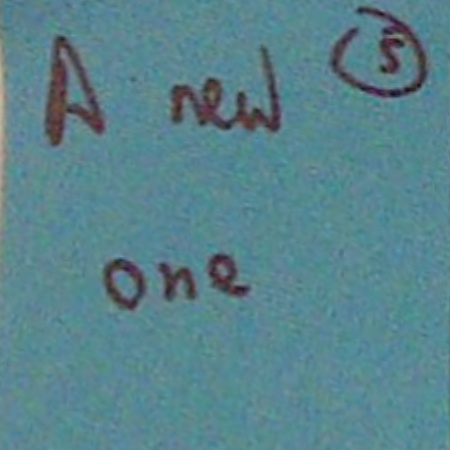 A new 5
one